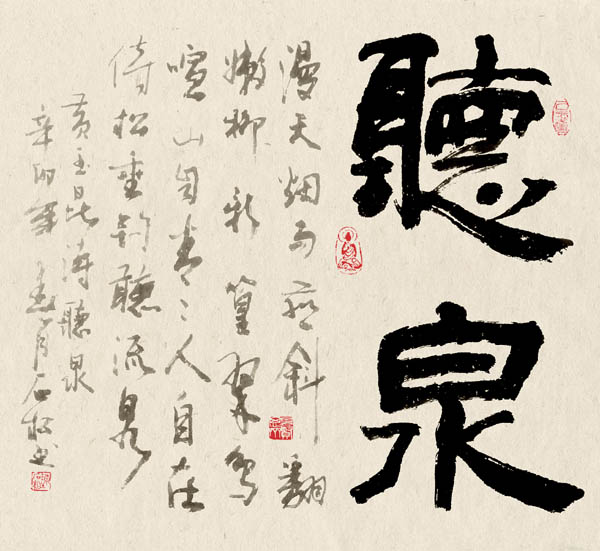 聽泉
漫天烟雨燕斜翻
嫩柳新篁翠鸟
喧山自青々人自在
倚松垂钓聽流泉
黄玉昆诗聽泉
辛卯年月石松书